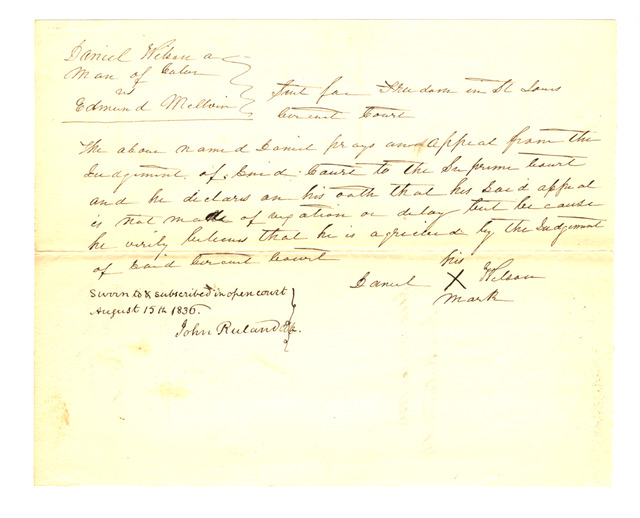 Daniel Wilson a
Man of Color
vs
Edmund Melvin
Suit for Freedom in St Louis
Circuit Court
The above named Daniel prays and Appeal from the
Judgement of Said Court to the Supreme Court
and he declares on his oath that his Said appeal
is not made of vexation or delay but because
he verily believes that he is agrieved by the Judgment
of Said Circuit Court
his
Daniel X Wilson
mark
Sworn to & subscribed in open court
August 15th 1836.
John Ruland Clk.